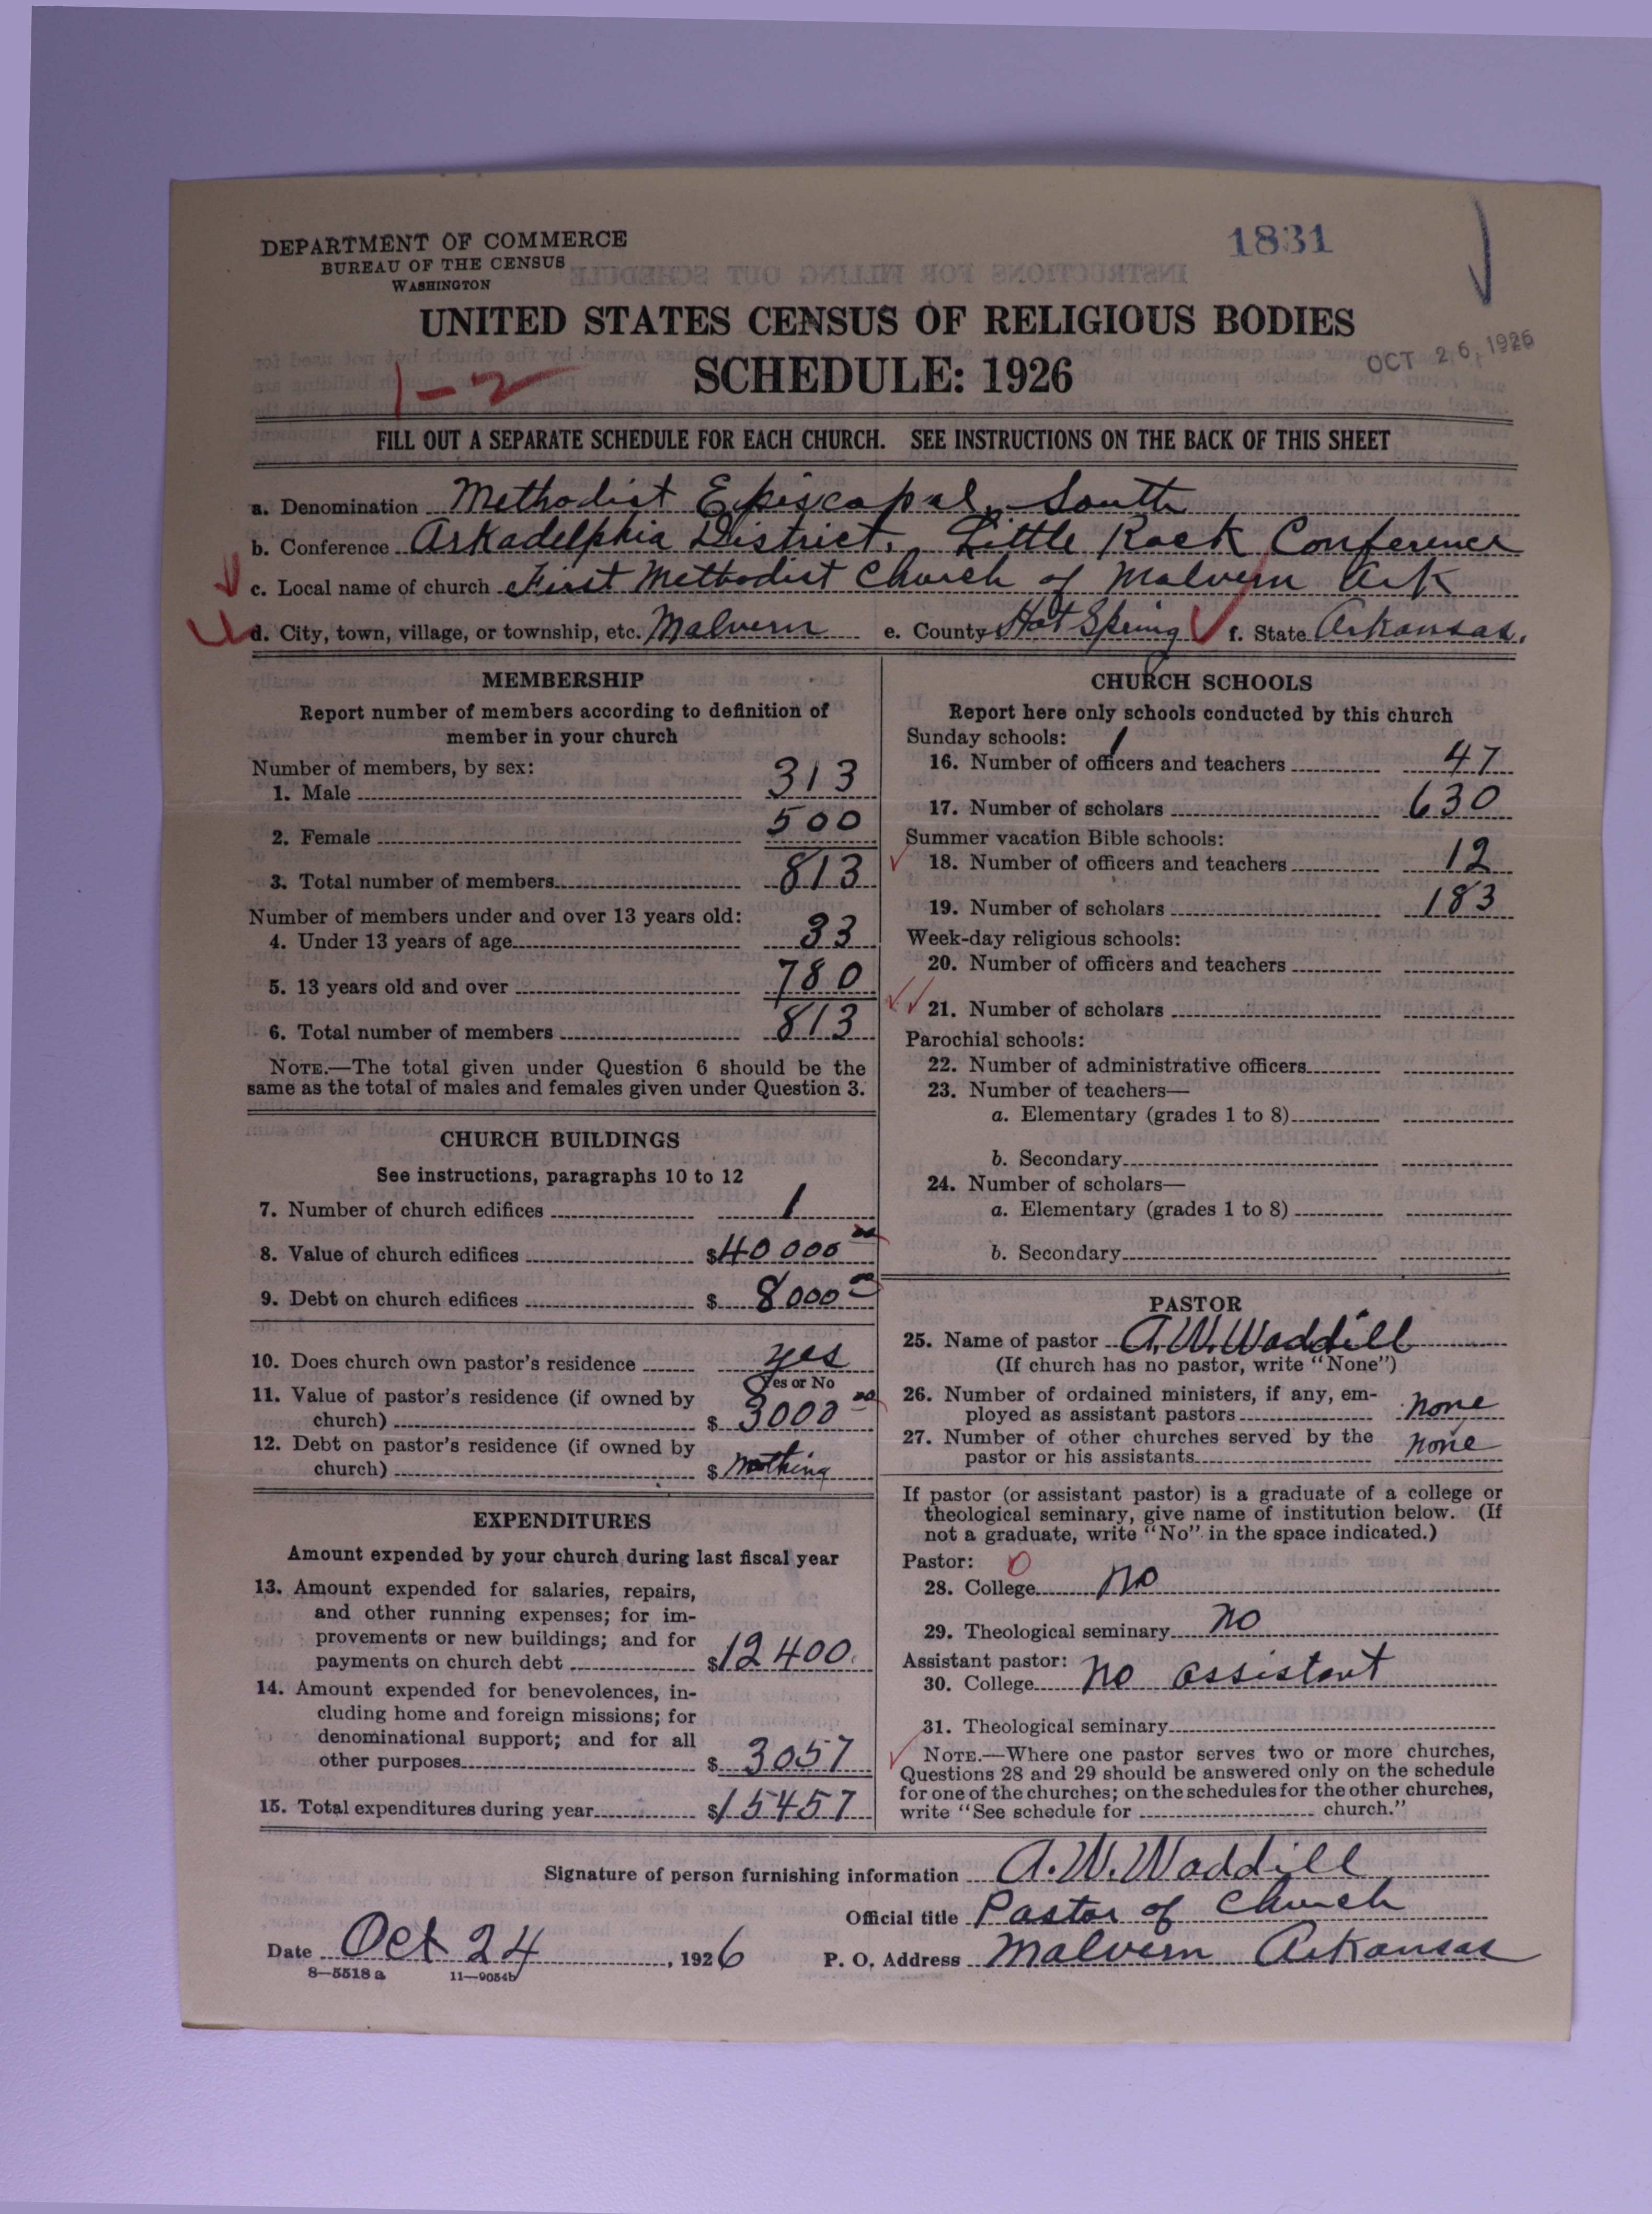 DEPARTMENT OF COMMERCE
BUREAU OF THE CENSUS
WASHINGTON
1831
UNITED STATES CENSUS OF RELIGIOUS BODIES
SCHEDULE: 1926
OCT 26 1926
1-2
FILL OUT A SEPARATE SCHEDULE FOR EACH CHURCH. SEE INSTRUCTIONS ON THE BACK OF THIS SHEET
a. Denomination Methodist Episcopal, South
b. Conference Arkadelphia District, Little Rock Conference
c. Local name of church First Methodist Church of Malvern Ark
d. City, town, village, or township, etc. Malvern e. County Hot Spring f. State Arkansas.
MEMBERSHIP
Report number of members according to definition of
member in your church
Number of members, by sex:
1. Male 313
2. Female 500
3. Total number of members 813
Number of members under and over 13 years old:
4. Under 13 years of age 33
5. 13 years old and over 780
6. Total number of members 813
NOTE.—The total given under Question 6 should be the
same as the total of males and females given under Question 3.
CHURCH BUILDINGS
See instructions, paragraphs 10 to 12
7. Number of church edifices 1
8. Value of church edifices $40000 00
9. Debt on church edifices $ 8000 00
10. Does church own pastor's residence yes
Yes or No
11. Value of pastor's residence (if owned by
church) $ 3000 00
12. Debt on pastor's residence (if owned by
church) $ nothing
EXPENDITURES
Amount expended by your church during last fiscal year
13. Amount expended for salaries, repairs,
and other running expenses; for im-
provements or new buildings; and for
payments on church debt $12400.
14. Amount expended for benevolences, in-
cluding home and foreign missions; for
denominational support; and for all
other purposes $ 3057
15. Total expenditures during year $15457
CHURCH SCHOOLS
Report here only schools conducted by this church
Sunday schools: 1
16. Number of officers and teachers 47
17. Number of scholars 630
Summer vacation Bible schools:
18. Number of officers and teachers 12
19. Number of scholars 183
Week-day religious schools:
20. Number of officers and teachers
21. Number of scholars
Parochial schools:
22. Number of administrative officers
23. Number of teachers—
a. Elementary (grades 1 to 8)
b. Secondary
24. Number of scholars—
a. Elementary (grades 1 to 8)
b. Secondary
PASTOR
25. Name of pastor A.W.Waddill
(If church has no pastor, write "None")
26. Number of ordained ministers, if any, em-
ployed as assistant pastors none
27. Number of other churches served by the
pastor or his assistants none
If pastor (or assistant pastor) is a graduate of a college or
theological seminary, give name of institution below. (If
not a graduate, write "No" in the space indicated.)
Pastor: 0
28. College no
29. Theological seminary no
Assistant pastor:
30. College no assistant
31. Theological seminary
NOTE.—Where one pastor serves two or more churches,
Questions 28 and 29 should be answered only on the schedule
for one of the churches; on the schedules for the other churches,
write "See schedule for church."
Signature of person furnishing information A.W.Waddill
Official title Pastor of Church
Date Oct 24, 1926 P. O. Address Malvern Arkansas
8—5518 a 11—9054b